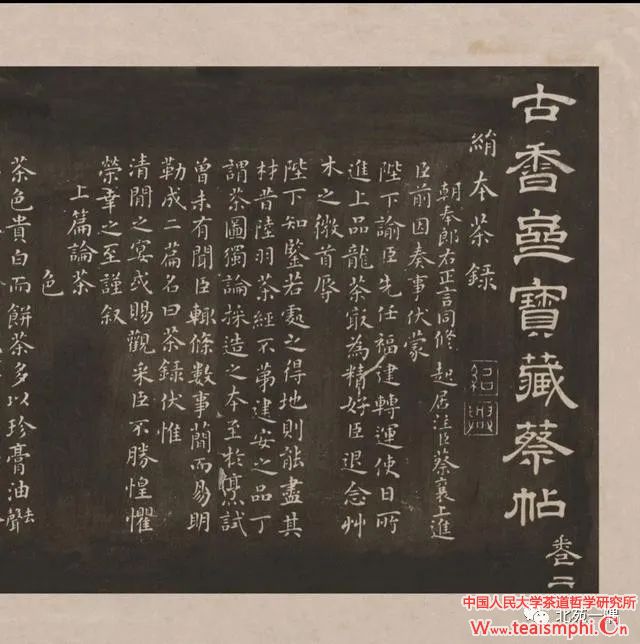 古香齋寶藏蔡帖 卷二
絹本茶録
紹興
朝奉郎右正言同修 起居注臣蔡襄上進
臣前因奏事伏蒙
陛下諭臣先任福建轉運使日所
進上品龍茶最為精好臣退念艸
木之微首辱
陛下知鑒若處之得地則能盡其
材昔陸羽茶經不第建安之品丁
謂茶圖獨論採造之本至於烹試
曾未有聞臣輒條數事簡而易明
勒成二篇名曰茶録伏惟
清閒之宴或賜觀采臣不勝惶懼
榮幸之至謹叙
上篇論茶
色
茶色貴白而餅茶多以珍膏油去聲
中国人民大学茶道哲学研究所
北苑一隅
www.teaismphi.Cn